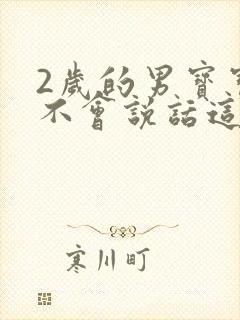 2歲的男寶
不會説話這
寒川町